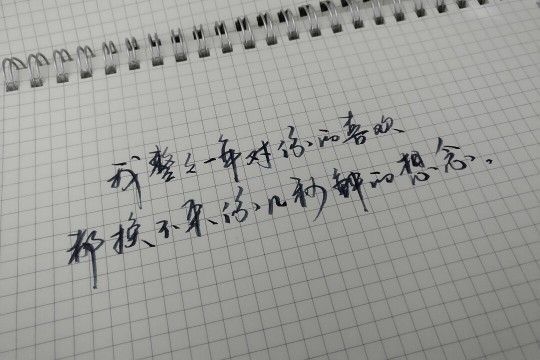 我整整一年对你的喜欢
都换不来你几秒钟的想念。